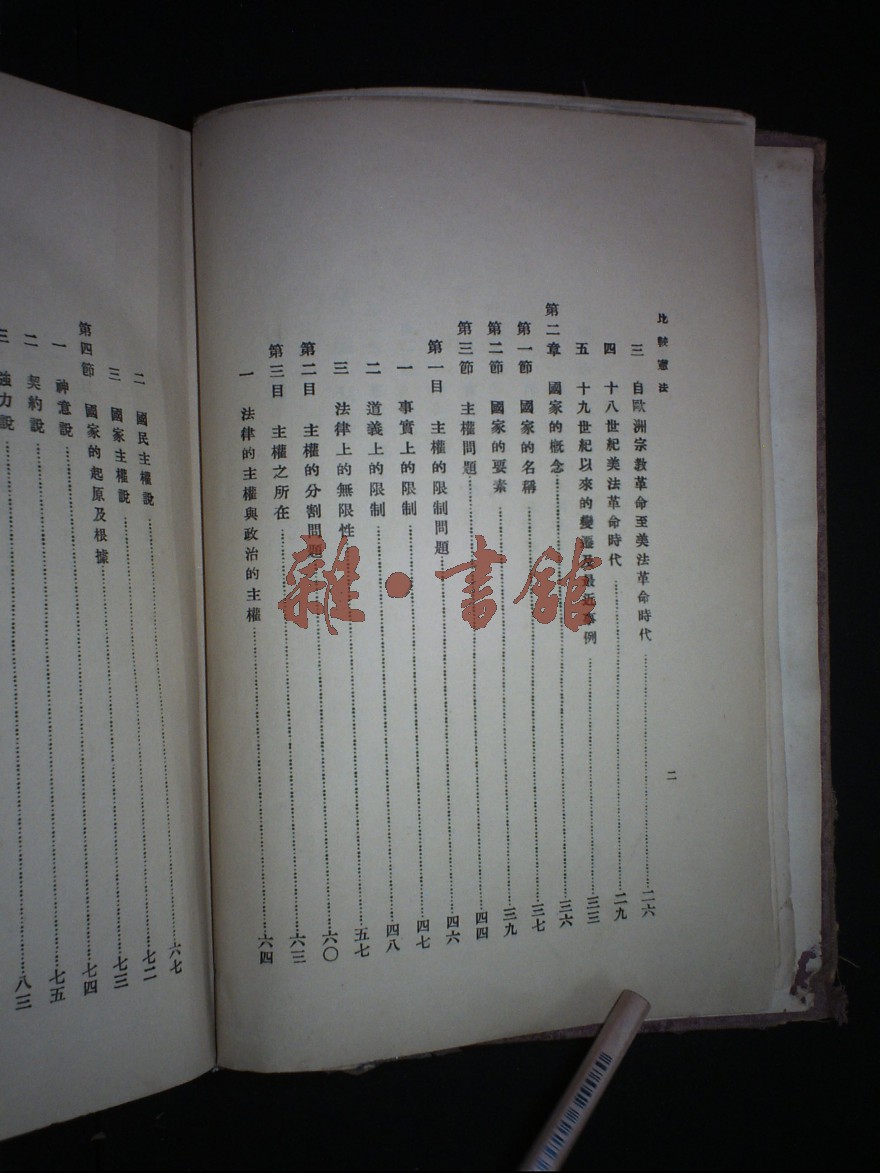 比較憲法
二
三 自歐洲宗教革命至美法革命時代……二六
四 十八世紀美法革命時代……二九
五 十九世紀以來的變遷及最近事例……三三
第二章 國家的概念……三六
第一節 國家的名稱……三七
第二節 國家的要素……三九
第三節 主權問題……四四
第一目 主權的限制問題……四六
一 事實上的限制……四七
二 道義上的限制……四八
三 法律上的無限性……五七
第二目 主權的分割問題……六〇
第三目 主權之所在……六三
一 法律的主權與政治的主權……六四
二 國民主權說……六七
三 國家主權說……七二
第四節 國家的起原及根據……七三
一 神意說……七四
二 契約說……七五
三 強力說……八三
雜·書館